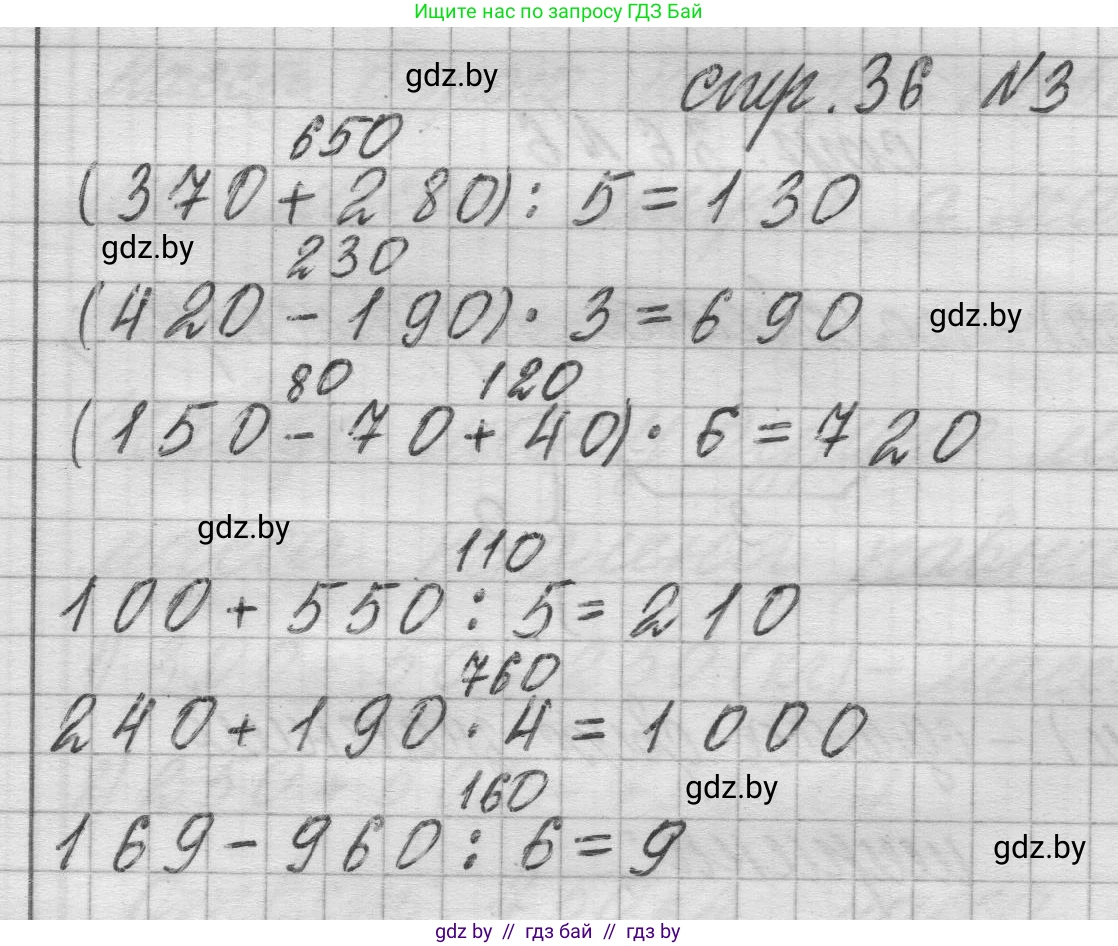 Ищите нас по запросу ГДЗ Бай
gdz.by
стр. 36 №3
650
(370 + 280) : 5 = 130
gdz.by
230
(420 - 190) · 3 = 690
gdz.by
80 120
(150 - 70 + 40) · 6 = 720
gdz.by
110
100 + 550 : 5 = 210
760
240 + 190 · 4 = 1000
160
gdz.by
169 - 960 : 6 = 9
gdz.by
gdz.by // гдз бай // гдз by